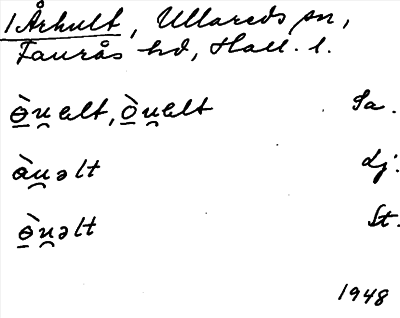 1 Århult, Ullareds sn,
Faurås hd, Hall. l.
ɵ̀u̯ɛlt, òu̯ɛlt Sa.
àu̯əlt Lj.
ɵ̀u̯əlt St.
1948